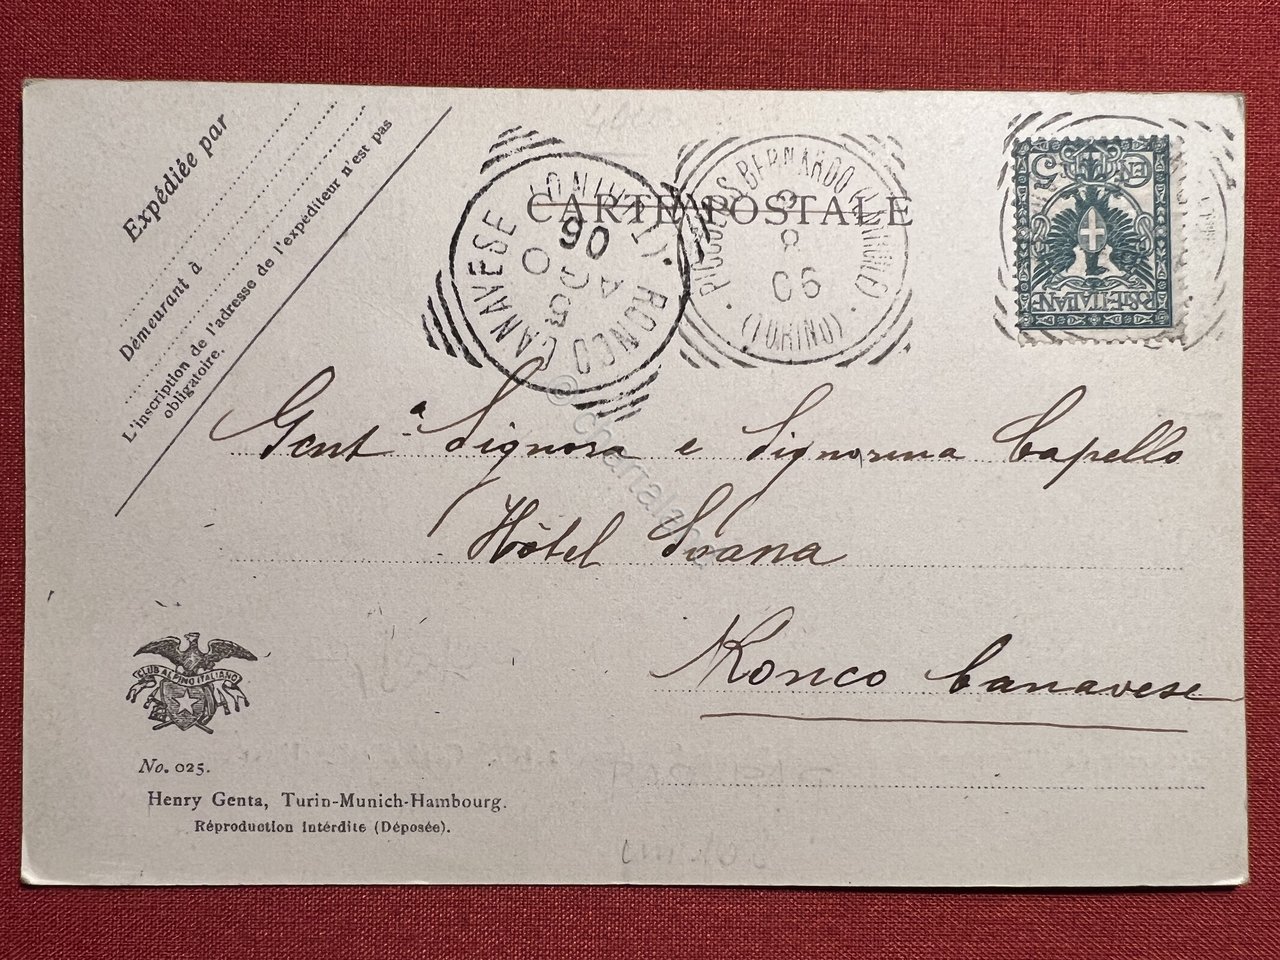 Expédiée par
Demeurant à
L'inscription de l'adresse de l'expéditeur n'est pas
obligatoire.
CARTE POSTALE
RONCO CANAVESE (TORINO)
06
PICCOLO S. BERNARDO
(TORINO)
8
06
CEN. 5
POSTE ITALIANE
Gent.ª Signora e Signorina Capello
Hôtel Svana
Ronco Canavese
CLUB ALPINO ITALIANO
No. 025.
Henry Genta, Turin-Munich-Hambourg.
Réproduction Intérdite (Déposée).